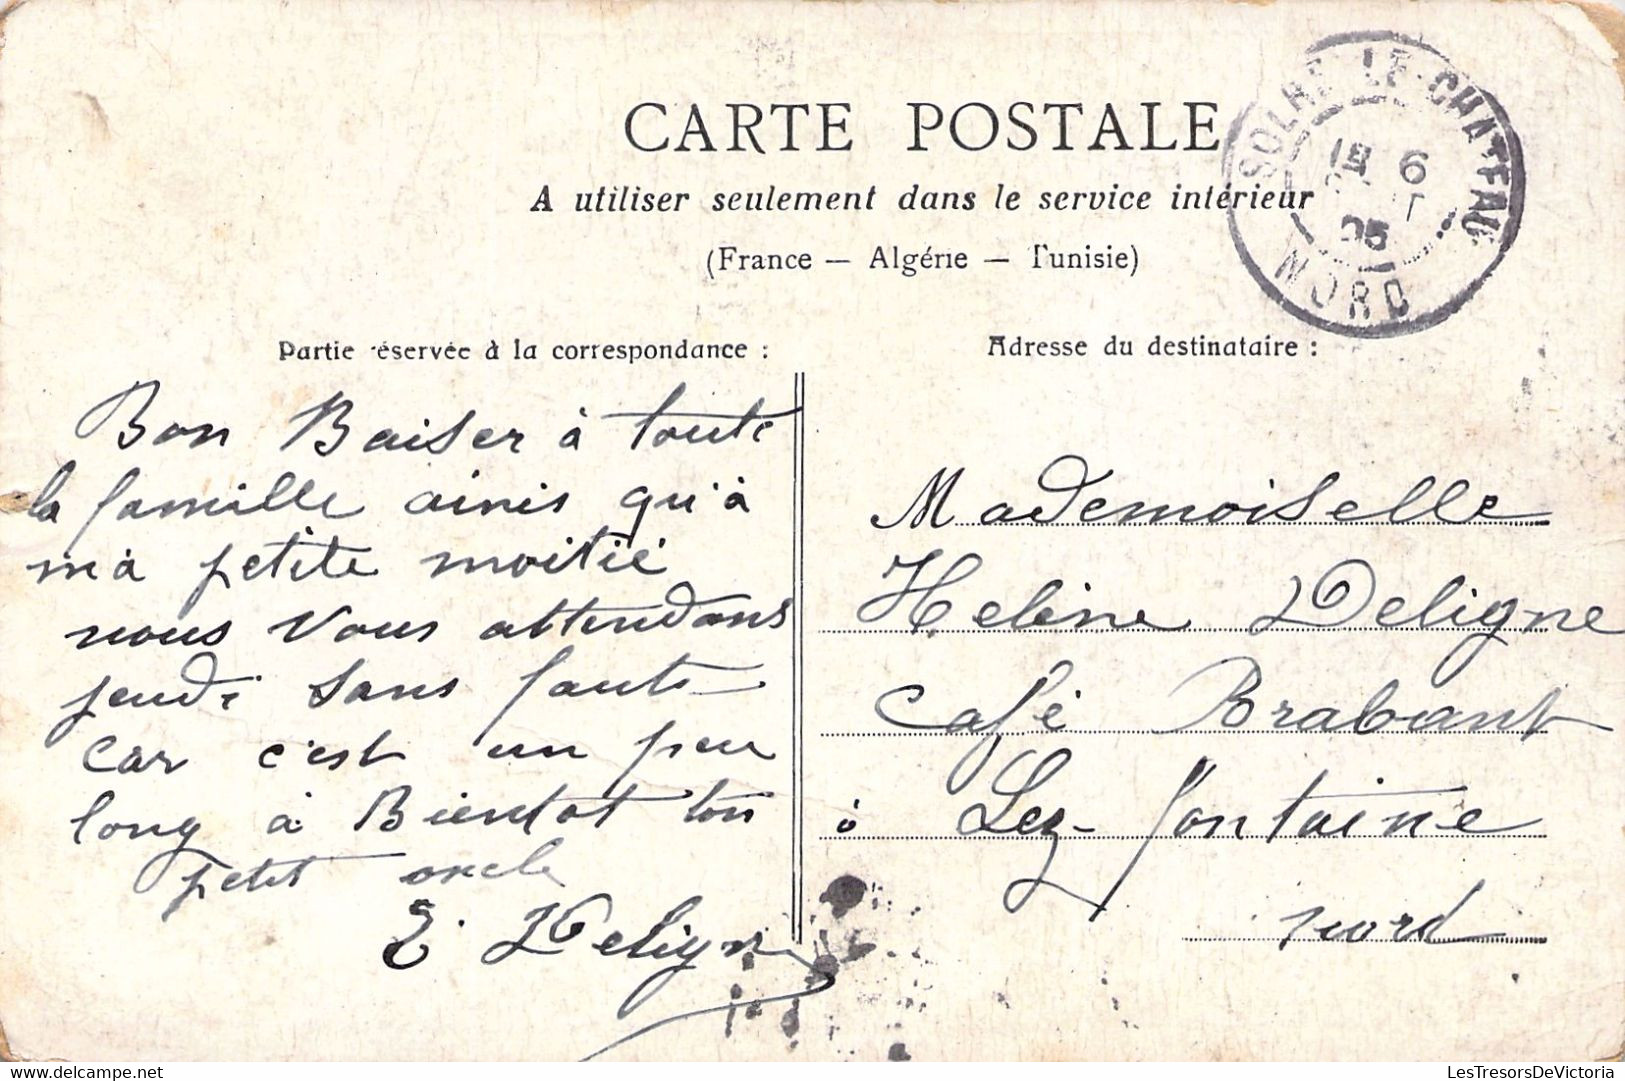 CARTE POSTALE
A utiliser seulement dans le service intérieur
(France — Algérie — Tunisie)
SOLRE-LE-CHATEAU
6
05
NORD
Partie réservée à la correspondance :
Adresse du destinataire :
Bon Baiser à toute
la famille ainis qu'à
ma petite moitié
nous vous attendons
jeudi sans faute
car c'est un peu
long à Bientot ton
petit oncle
E. Deligne
Mademoiselle
Helène Deligne
Café Brabant
à Lez-fontaine
Nord
LesTresorsDeVictoria.com
LesTresorsDeVictoria